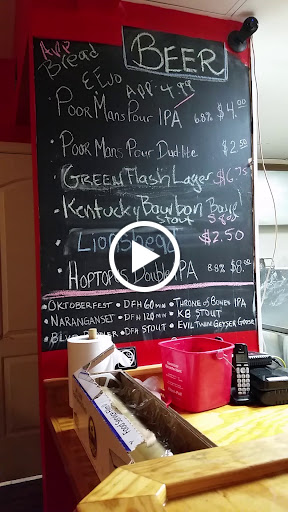 BEER
ADD
Bread
& EVO ADD 4.99
POOR MANS POUR IPA 6.8% $4.00
POOR MANS POUR Dudlite $2.50
GREEN FLASH Lager $6.75
KENTUCKY Bourbon
Stout
$2.50
HOPTOPUS DOUBLE IPA 8.8% $8.00
• OKTOBERFEST • DFH 60 MIN • THRONE OF BONES IPA
• NARANGANSET • DFH 120 MIN • KB STOUT
• DFH STOUT • EVIL TWIN GEYSER GOOSE